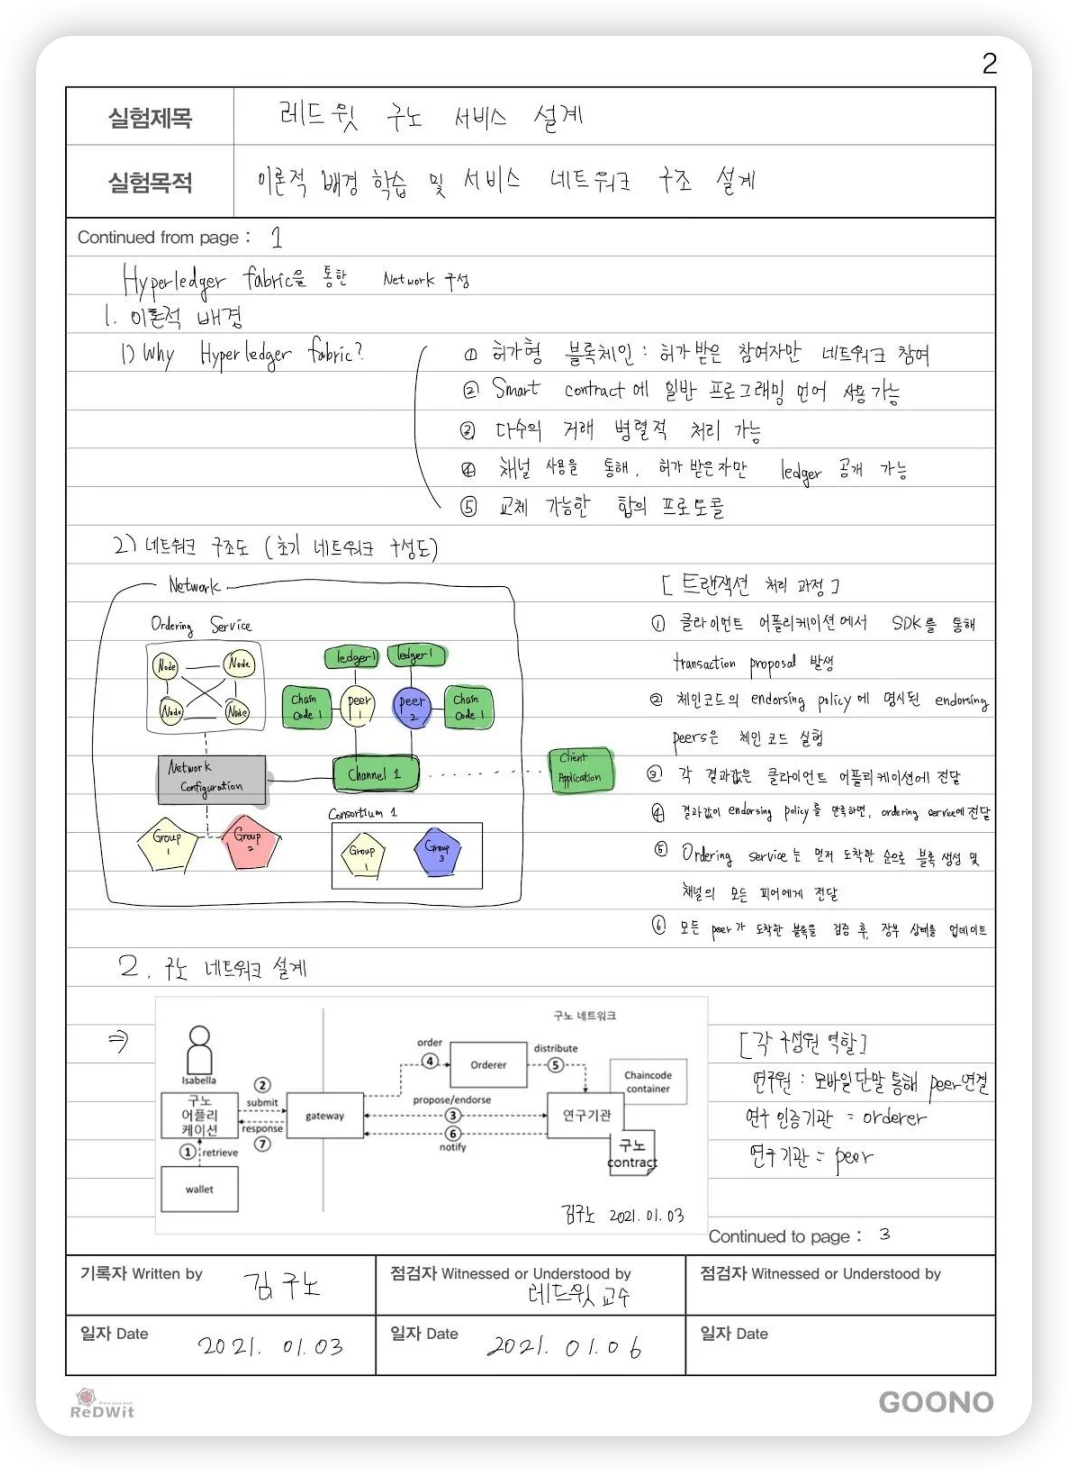 2
실험제목 레드윗 구노 서비스 설계
실험목적 이론적 배경 학습 및 서비스 네트워크 구조 설계
Continued from page : 1
Hyperledger fabric을 통한 Network 구성
1. 이론적 배경
1) Why Hyperledger fabric?
① 허가형 블록체인 : 허가 받은 참여자만 네트워크 참여
② Smart contract에 일반 프로그래밍 언어 사용 가능
③ 다수의 거래 병렬적 처리 가능
④ 채널 사용을 통해, 허가 받은자만 ledger 공개 가능
⑤ 교체 가능한 합의 프로토콜
2) 네트워크 구조도 (초기 네트워크 구성도)
Network
Ordering Service
Node Node
Node Node
ledger1 ledger1
Chain Code 1
peer 1
peer 2
Chain Code 1
Network Configuration
Channel 1
Client Application
Group 1
Group 2
Consortium 1
Group 1
Group 3
[ 트랜잭션 처리 과정 ]
① 클라이언트 어플리케이션에서 SDK를 통해
transaction proposal 발생
② 체인코드의 endorsing policy에 명시된 endorsing
peers은 체인 코드 실험
③ 각 결과값은 클라이언트 어플리케이션에 전달
④ 결과값이 endorsing policy를 만족하면, ordering service에 전달
⑤ Ordering service는 먼저 도착한 순으로 블록 생성 및
채널의 모든 피어에게 전달
⑥ 모든 peer가 도착한 블록을 검증 후, 장부 상태를 업데이트
2. 구노 네트워크 설계
⇒
구노 네트워크
Isabella
구노
어플리
케이션
② submit
response ⑦
① retrieve
wallet
gateway
order ④
Orderer
distribute ⑤
propose/endorse ③
⑥ notify
연구기관
Chaincode
container
구노
contract
김구노 2021.01.03
[각 구성원 역할]
연구원 : 모바일단말 통해 peer연결
연구 인증기관 = orderer
연구기관 = peer
Continued to page : 3
기록자 Written by 김구노
점검자 Witnessed or Understood by 레드윗 교수
점검자 Witnessed or Understood by
일자 Date 2021. 01.03
일자 Date 2021. 01.06
일자 Date
ReDWit
GOONO